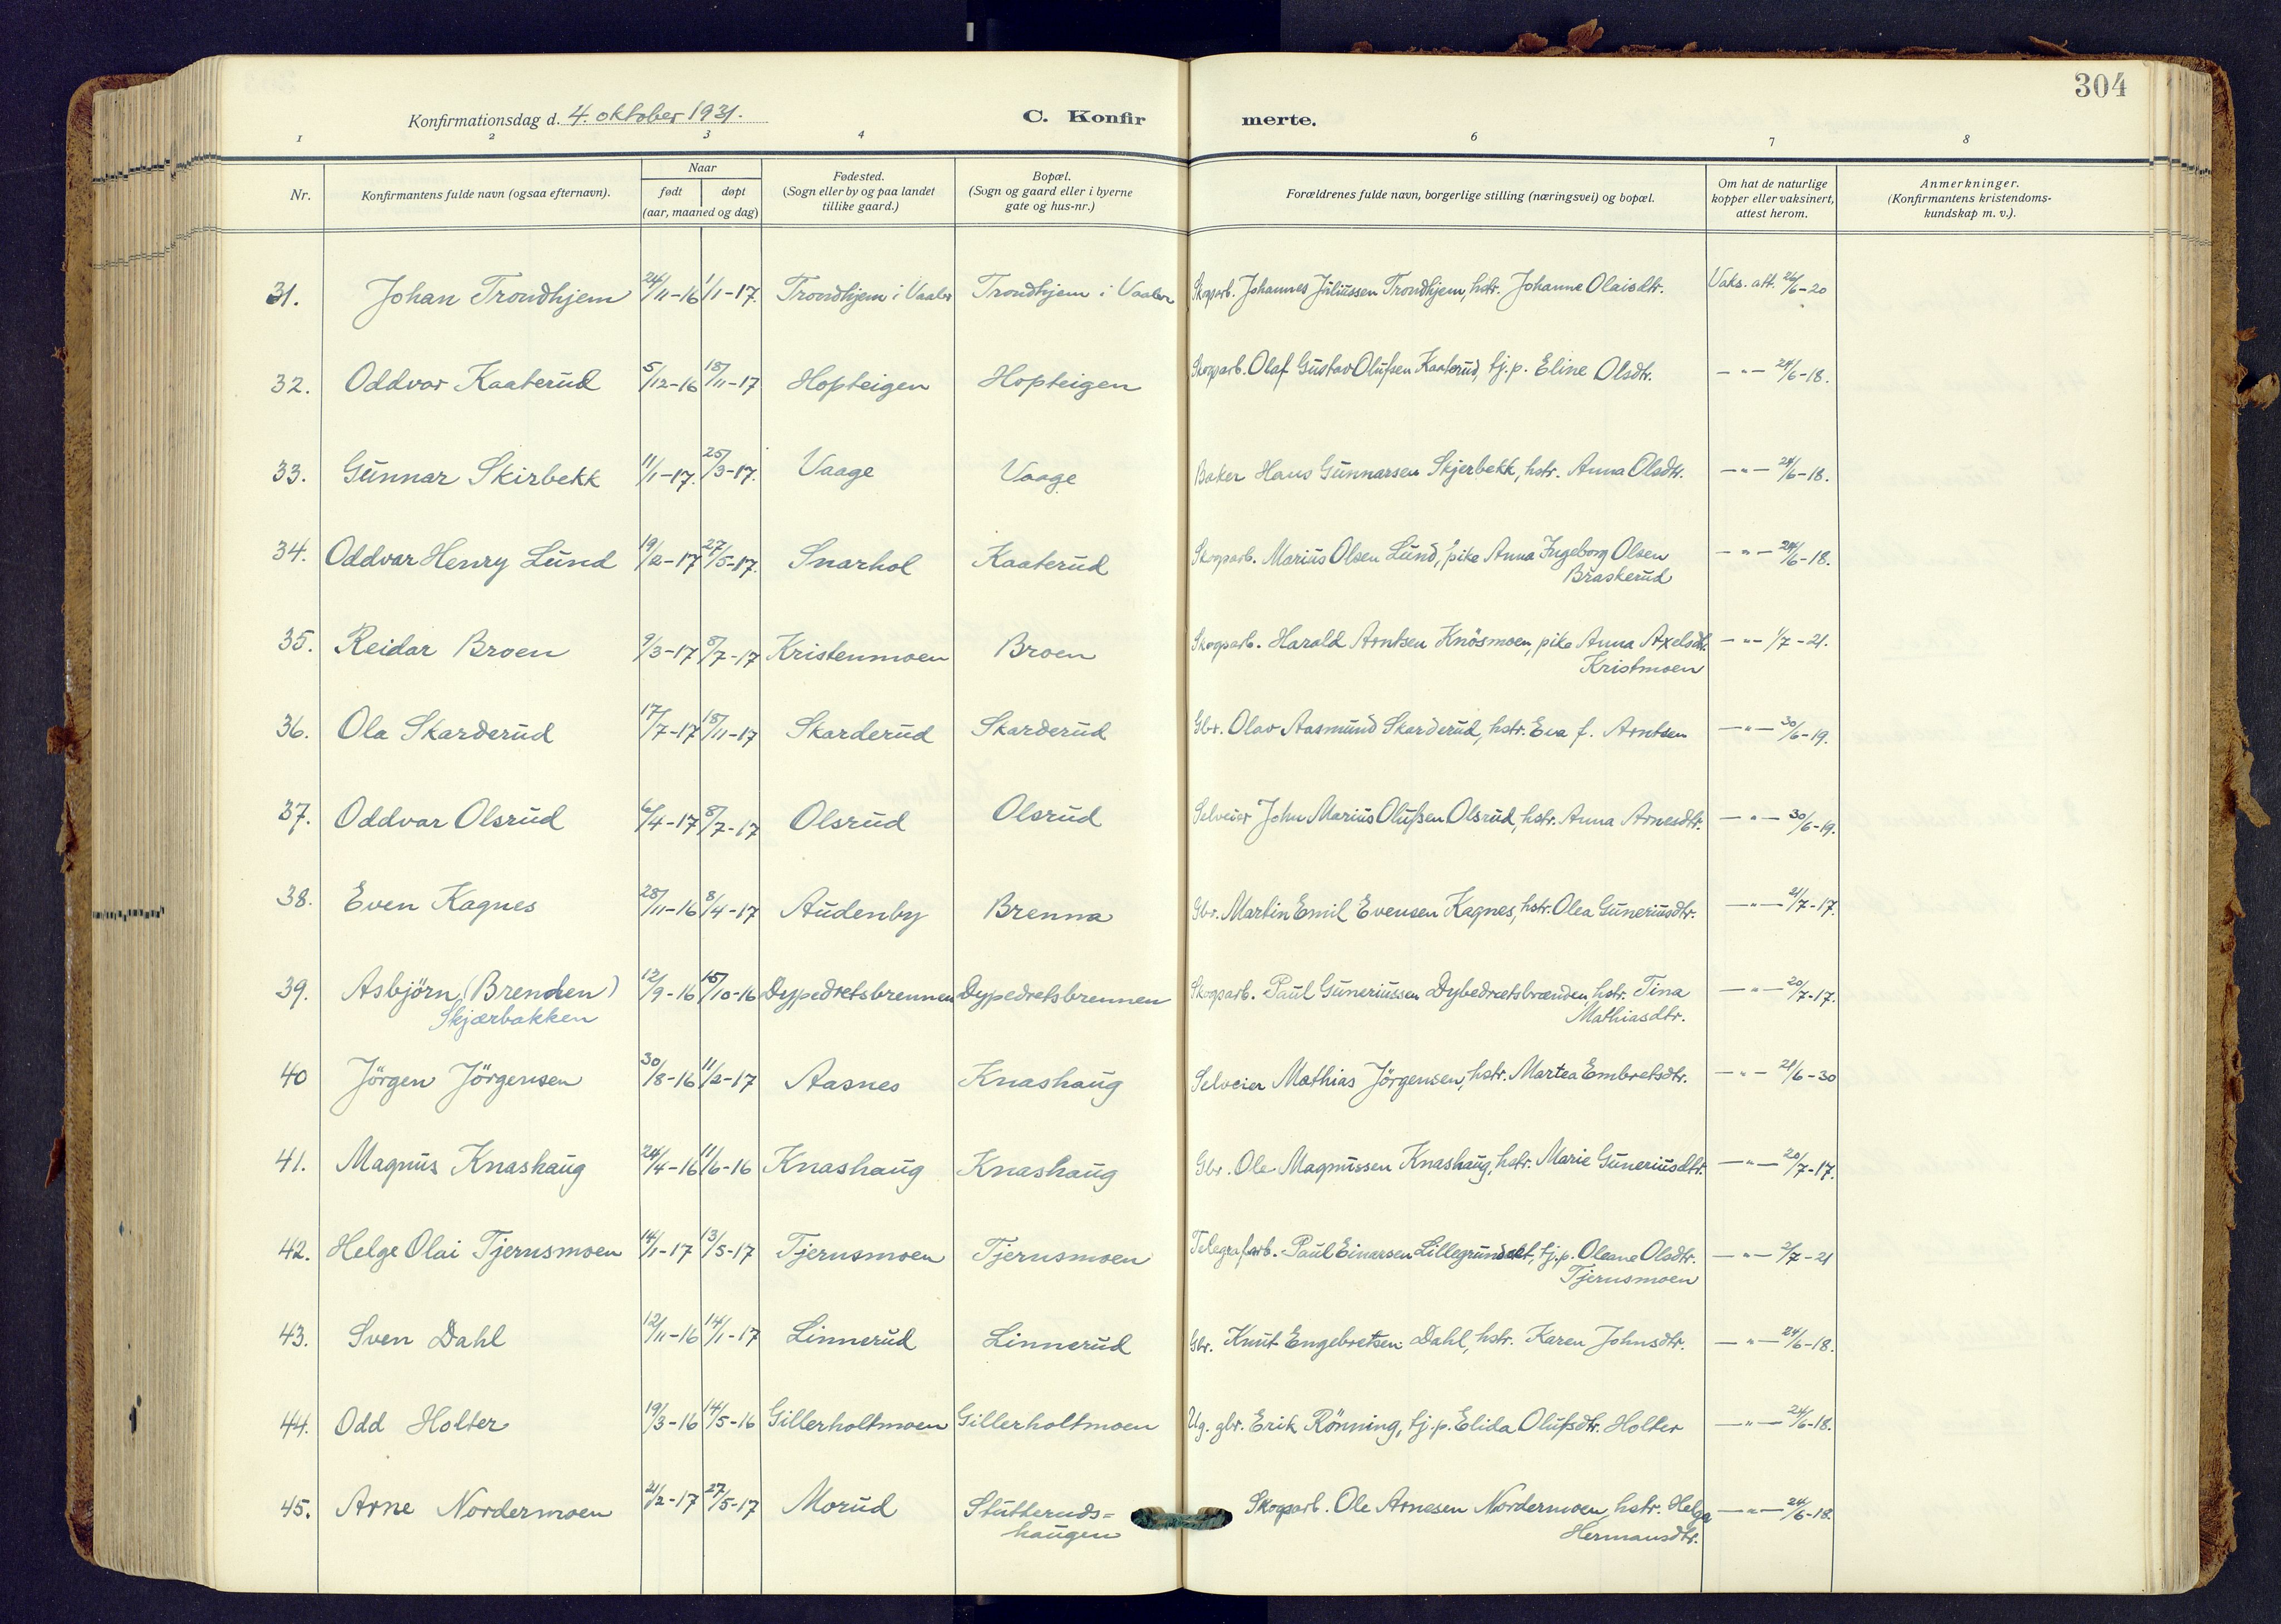 304
Konfirmationsdag d. 4. oktober 1931.
C. Konfirmerte.
1 2 3 4 6 7 8
Nr.
Konfirmantens fulde navn (ogsaa efternavn).
Naar
født døpt
(aar, maaned og dag)
Fødested.
(Sogn eller by og paa landet
tillike gaard.)
Bopæl.
(Sogn og gaard eller i byerne
gate og hus-nr.)
Forældrenes fulde navn, borgerlige stilling (næringsvei) og bopæl.
Om hat de naturlige
kopper eller vaksinert,
attest herom.
Anmerkninger.
(Konfirmantens kristendoms-
kundskap m. v.).
31. Johan Trondhjem 24/11-16 1/1-17. Trondhjem i Vaaler Trondhjem i Vaaler Skogarb. Johannes Juliussen Trondhjem, hstr. Johanne Olaisdtr. Vaks. att. 26/6-20
32. Oddvar Kaaterud 5/12-16 18/11-17 Hopteigen Hopteigen Skogarb. Olaf Gustav Olufsen Kaaterud, tj.p. Eline Olsdtr. — " — 24/6-18.
33. Gunnar Skirbekk 11/1-17. 25/3-17. Vaage Vaage Baker Hans Gunnarsen Skjerbekk, hstr. Anna Olsdtr. — " — 24/6-18.
34. Oddvar Henry Lund 19/2-17 27/5-17. Snarhol Kaaterud Skogarb. Marius Olsen Lund, pike Anna Ingeborg Olsen
Braskerud — " — 24/6-18.
35. Reidar Broen 9/3-17 8/7-17 Kristenmoen Broen Skogsarb. Harald Arntsen Knösmoen, pike Anna Axelsdtr.
Kristmoen — " — 1/7-21.
36. Ola Skarderud 17/7-17 18/11-17 Skarderud Skarderud Gbr. Olav Aasmund Skarderud, hstr. Eva f. Arntsen — " — 30/6-19.
37. Oddvar Olsrud 6/4-17 8/7-17 Olsrud Olsrud Selveier John Marius Olufsen Olsrud, hstr. Anna Arnesdtr. — " — 30/6-19.
38. Even Kagnes 28/11-16 8/4-17 Audenby Brenna Gbr. Martin Emil Evensen Kagnes, hstr. Olea Guneriusdtr. — " — 21/7-17.
39. Asbjörn (Brenden)
Skjærbakken 12/9-16 15/10-16 Dypedretsbrennen Dypedretsbrennen Skogsarb. Paul Guneriussen Dybedrætsbrænden, hstr. Tina
Mathiasdtr. — " — 20/7-17.
40 Jörgen Jörgensen 30/8-16 11/2-17 Aasnes Knashaug Selveier Mathias Jörgensen, hstr. Martea Embretsdtr. — " — 21/6-30
41. Magnus Knashaug 24/4-16 11/6-16 Knashaug Knashaug Gbr. Ole Magnussen Knashaug, hstr. Marie Guneriusdtr. — " — 20/7-17.
42. Helge Olai Tjernsmoen 14/1-17 13/5-17 Tjernsmoen Tjernsmoen Telegrafarb. Paul Einarsen Lillegrundset, tj.p. Oleane Olsdtr.
Tjernsmoen — " — 2/7-21
43. Sven Dahl 12/11-16 14/1-17 Linnerud Linnerud Gbr. Knut Engebretsen Dahl, hstr. Karen Johnsdtr. — " — 24/6-18.
44. Odd Holter 19/3-16 14/5-16 Gillerholtmoen Gillerholtmoen Ug. gbr. Erik Rönning, tj.p. Elida Olufsdtr. Holter — " — 24/6-18.
45. Arne Nordermoen 21/2-17 27/5-17 Morud Stutteruds=
haugen Skogsarb. Ole Arnesen Nordermoen, hstr. Helga
Hermansdtr. — " — 24/6-18.